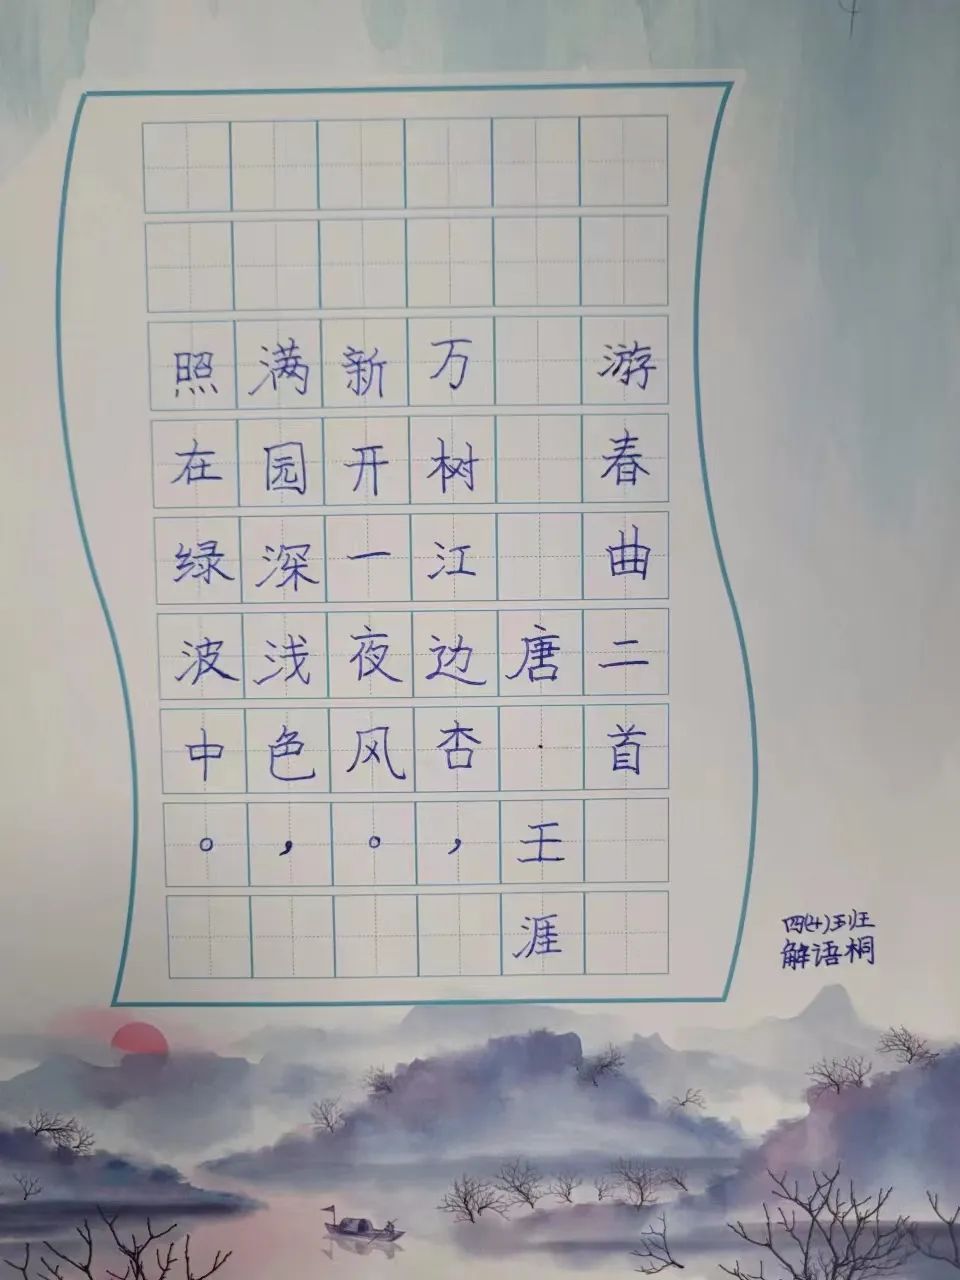 游春曲二首
唐·王涯
万树江边杏，
新开一夜风。
满园深浅色，
照在绿波中。
四(十)班
解语桐